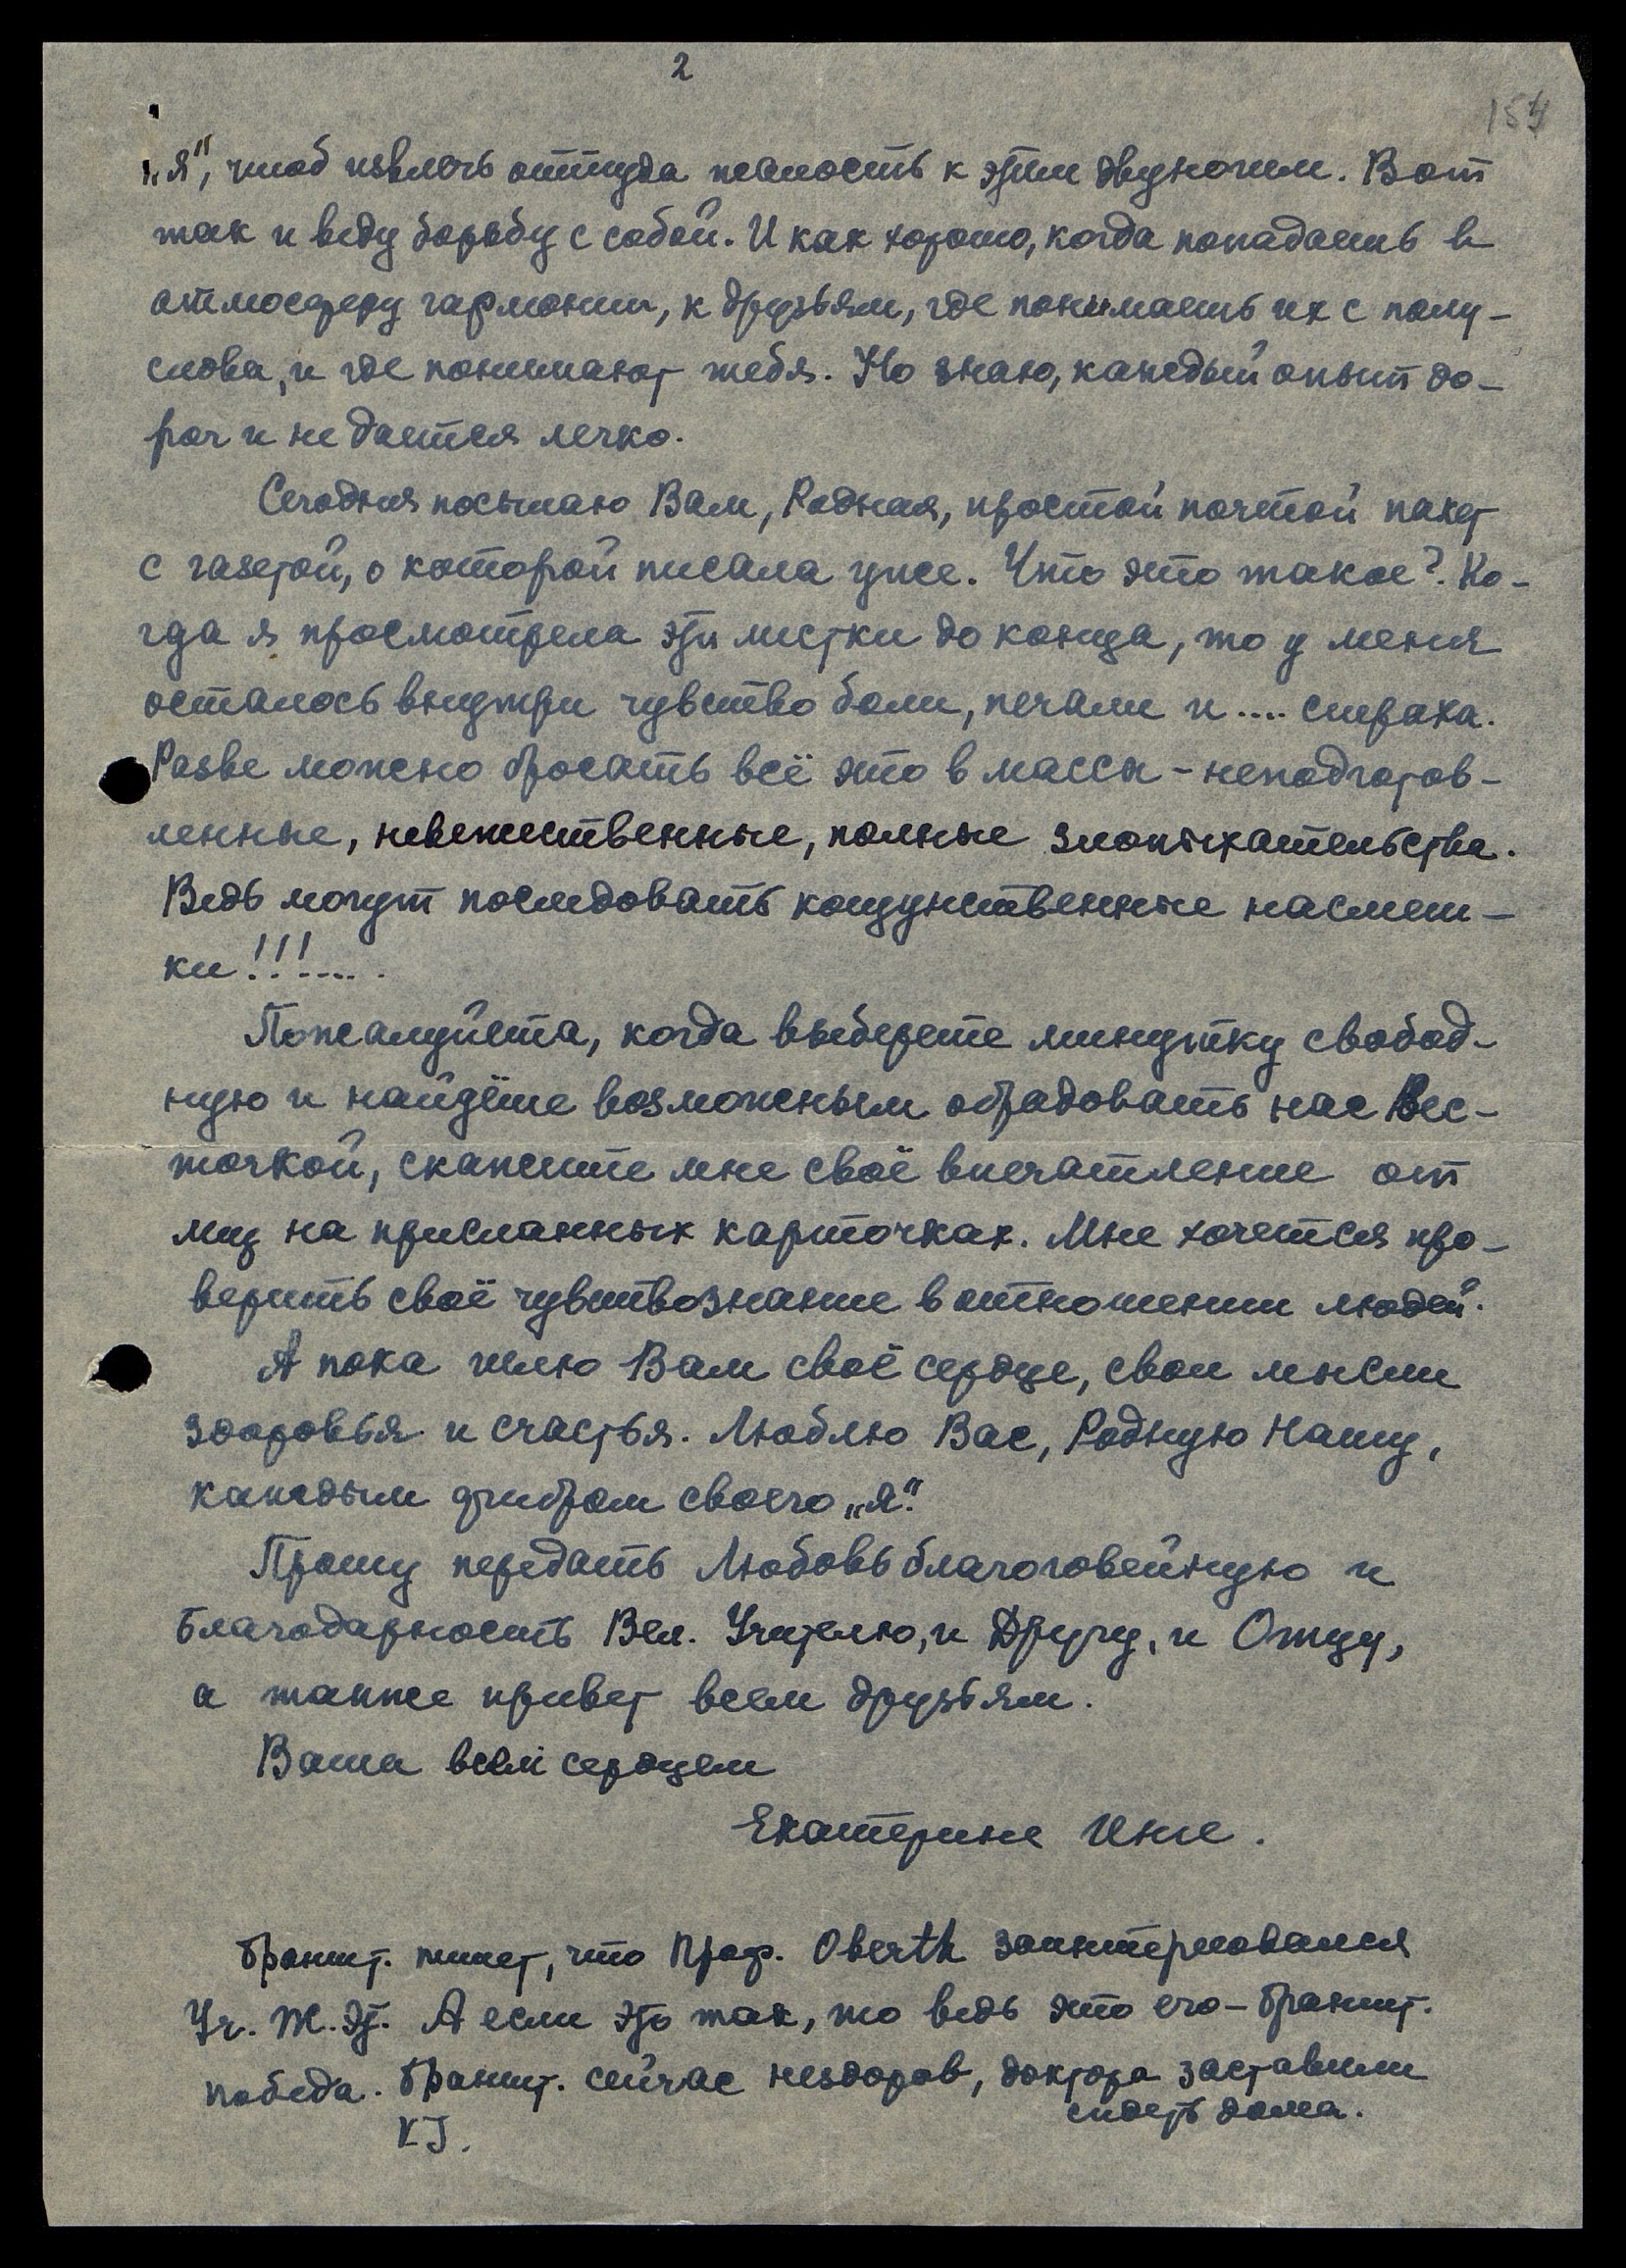 2
154
„я", чтоб извлечь оттуда жалость к этим двуногим. Вот
так и веду борьбу с собой. И как хорошо, когда попадаешь в
атмосферу гармонии, к друзьям, где понимаешь их с полу-
слова, и где понимают тебя. Но знаю, каждый опыт до-
рог и не дается легко.
Сегодня посылаю Вам, Родная, простой почтой пакет
с газетой, о которой писала уже. Что это такое? Ко-
гда я просмотрела эти листки до конца, то у меня
осталось внутри чувство боли, печали и .... страха.
Разве можно бросать всё это в массы - неподготов-
ленные, невежественные, полные злопыхательства.
Ведь могут последовать кощунственные насмеш-
ки!!!.....
Пожалуйста, когда выберете минутку свобод-
ную и найдёте возможным обрадовать нас Вес-
точкой, скажите мне своё впечатление от
лиц на присланных карточках. Мне хочется про-
верить своё чувствознание в отношении людей.
А пока шлю Вам своё сердце, свои мысли
здоровья и счастья. Люблю Вас, Родную Нашу,
каждым фибром своего „я".
Прошу передать Любовь благоговейную и
благодарность Вел. Учителю, и Другу, и Отцу,
а также привет всем друзьям.
Ваша всем сердцем
Екатерине Инге.
Бранит. пишет, что Проф. Oberth заинтересовался
Уч. Ж.Эт. А если это так, то ведь это его - Бранит.
победа. Бранит. сейчас нездоров, доктора заставили
сидеть дома.
KJ.